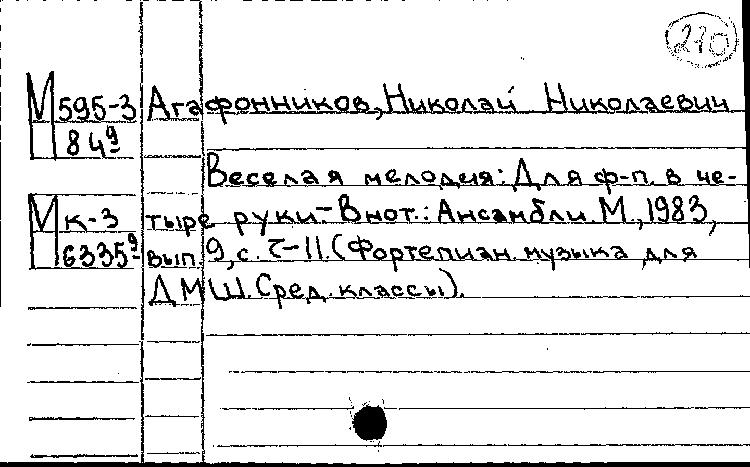 270
М 595-3 Агафонников, Николай Николаевич
84⁹
Веселая мелодия: Для ф-п. в че-
М к-3 тыре руки.- В нот.: Ансамбли. М., 1983,
6335⁹ вып. 9, с. 7-11. (Фортепиан. музыка для
ДМШ. Сред. классы).